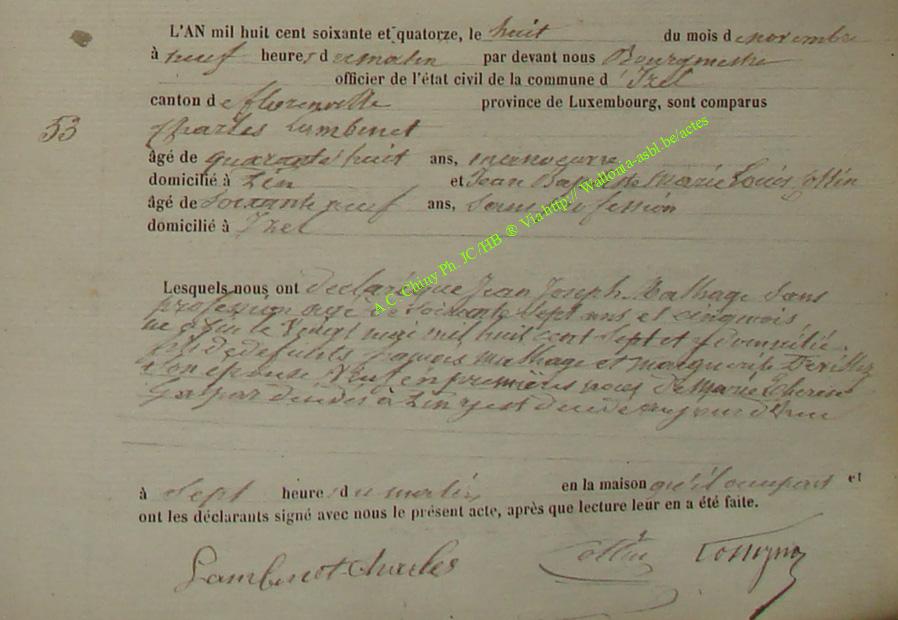 L'AN mil huit cent soixante et quatorze, le huit du mois de novembre
à neuf heures du matin par devant nous Bourgmestre
officier de l'état civil de la commune d' Izel
canton de florenville province de Luxembourg, sont comparus
53
Charles Lambinet
âgé de quarante huit ans, manoeuvre
domicilié à Zin et Jean Baptiste Marie Louis Collin
âgé de soixante neuf ans, sans profession
domicilié à Izel
Lesquels nous ont déclaré que Jean Joseph Mathage sans
profession agé de soixante sept ans et cinq mois
né à Zin le vingt mai mil huit cent sept et y domicilié
fils de defunts françois Mathage et marguerite
son épouse veuf en premières noces de Marie Therese
Gaspar décédée à Zin y est décédé aujourd'hui
à sept heures du matin en la maison qu'il occupait et
ont les déclarants signé avec nous le présent acte, après que lecture leur en a été faite.
Lambinet Charles Collin
A.C. Chiny Ph. JC/HB ® Via http:// Wallonia-asbl.be/actes